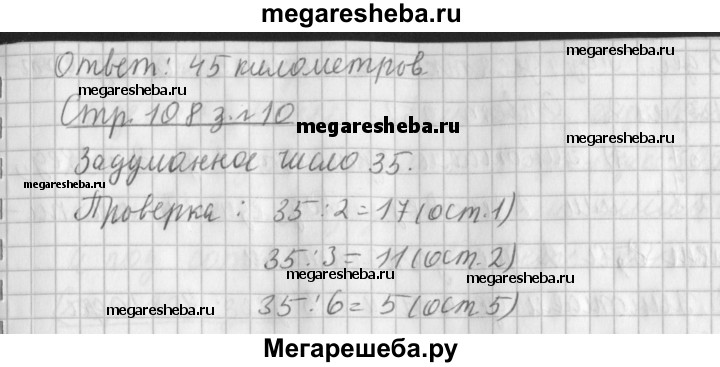 megaresheba.ru
Ответ: 45 километров
megaresheba.ru
Стр. 108 з. 10
megaresheba.ru
megaresheba.ru
Задуманное число 35.
megaresheba.ru
megaresheba.ru
Проверка: 35:2=17(ост.1)
35:3=11(ост.2)
megaresheba.ru
megaresheba.ru
35:6=5(ост 5)
megaresheba.ru
Мегарешеба.ру